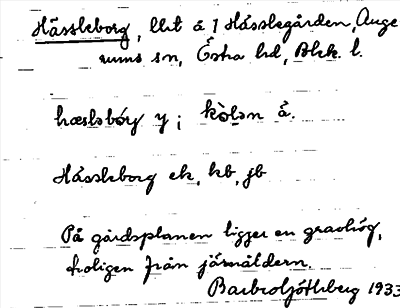 Hässleborg, lht å 1 Hässlegården, Auge
rums sn, Östra hd, Blek. l.
hæslsbórg y; kòlən å.
Hässleborg ek, kb, jb
På gårdsplanen ligger en gravhög,
troligen från järnåldern.
Barbro 1933